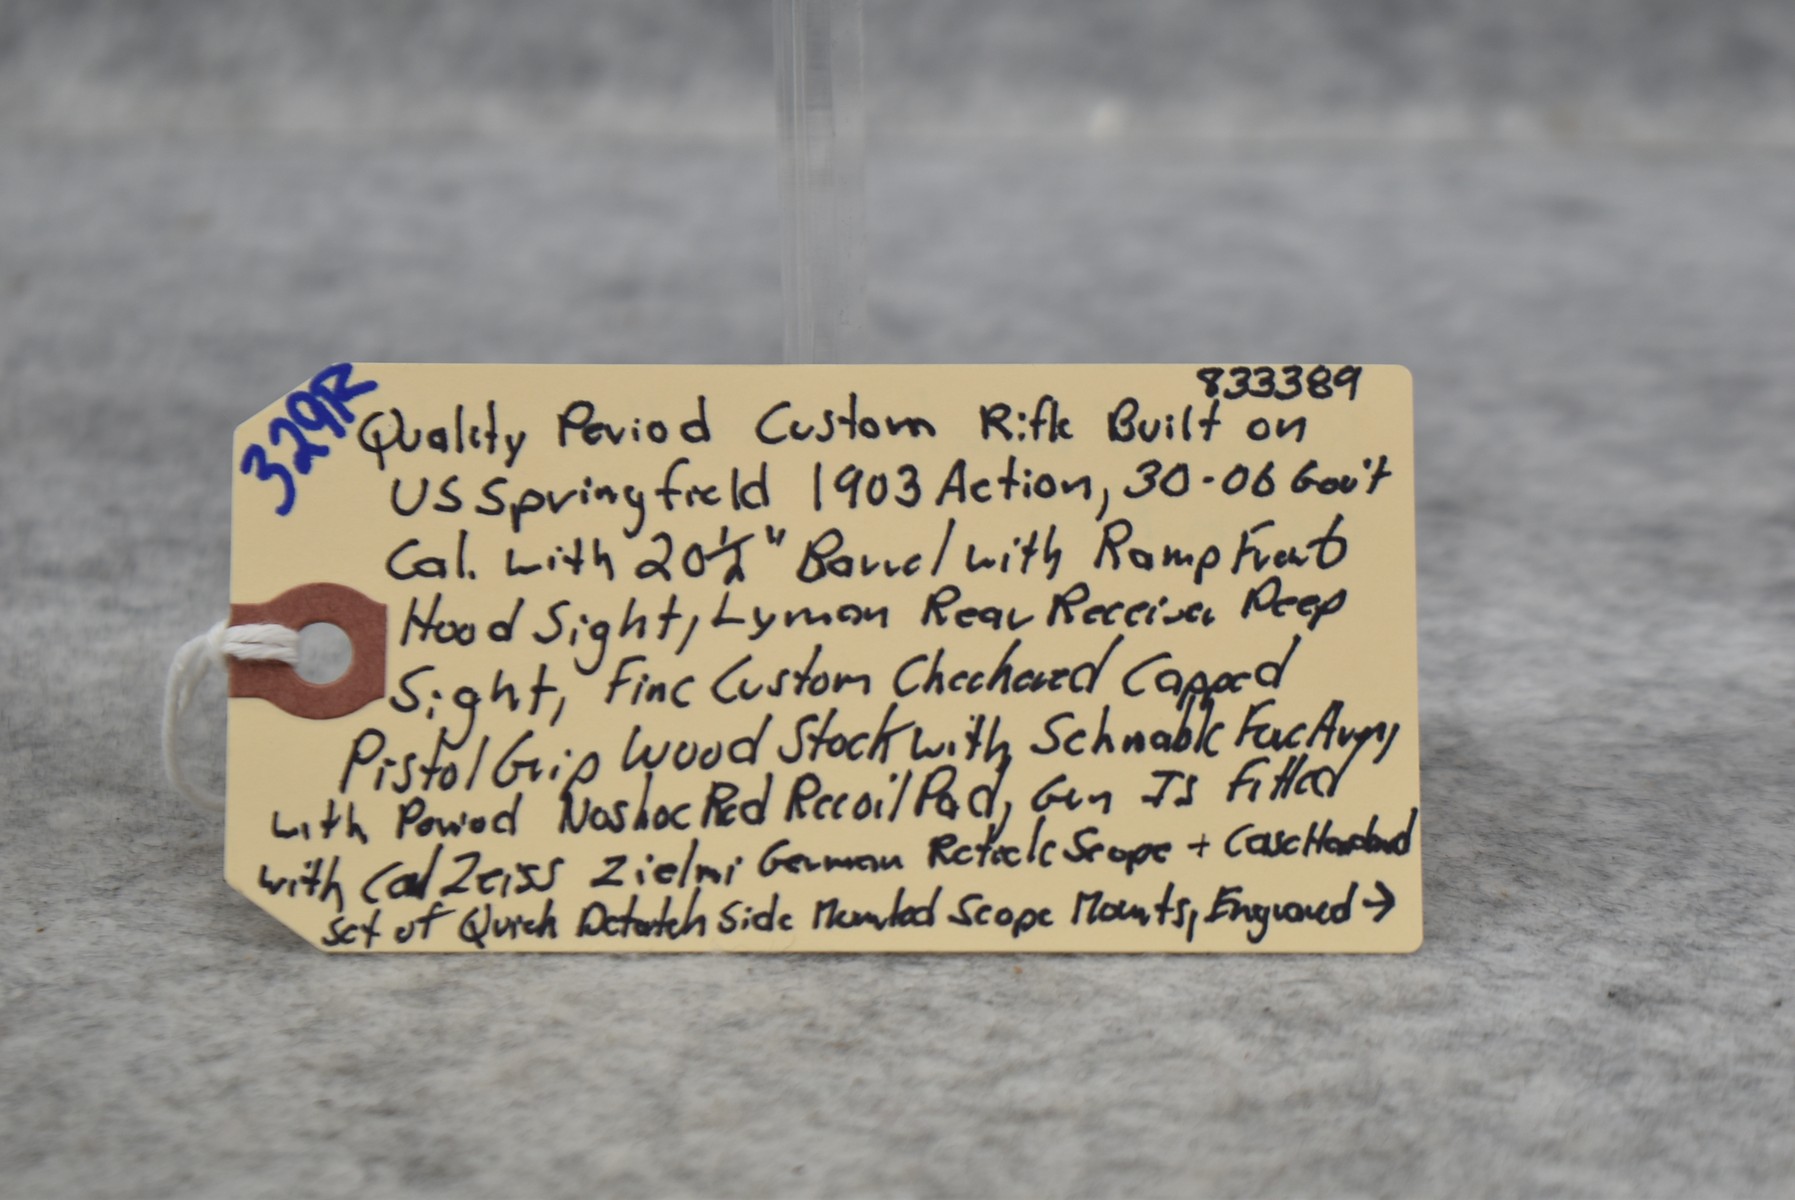 833389
329R
Quality Period Custom Rifle Built on
US Springfield 1903 Action, 30-06 Gov't
Cal. with 20 1/2" Barrel with Ramp Front
Hood Sight, Lyman Rear Receiver Peep
Sight, Fine Custom Checkered Capped
Pistol Grip Wood Stock with Schnable ForeArm,
with Period Noshoc Red Recoil Pad, Gun Is Fitted
with Carl Zeiss Zielmi German Reticle Scope + Case Hardend
set of Quick Detatch Side Mounted Scope Mounts, Engraved →